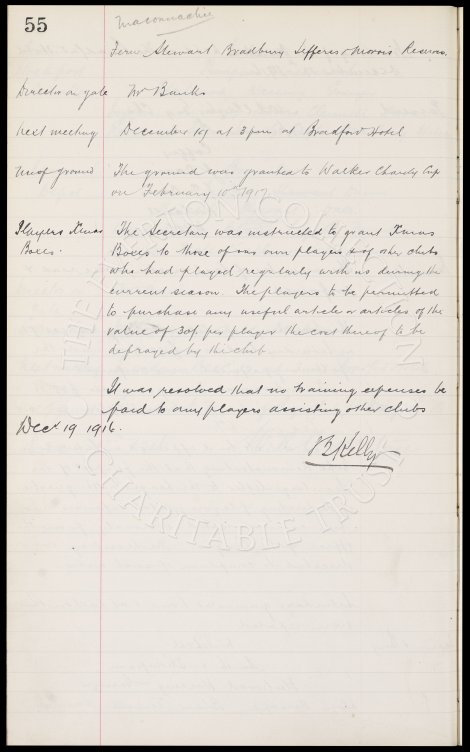 55
Maconnachie
Fern Stewart Bradbury Jefferis & Morris Reserves.
Director on gate Mr Banks
Next meeting December 19 at 3pm at Bradford Hotel
Use of ground The ground was granted to Walker Charity Cup
on February 10th 1917
Players Xmas The Secretary was instructed to grant Xmas
Boxes. Boxes to those of our own players & of other clubs
who had played regularly with us during the
current season. The players to be permitted
to purchase any useful article or articles of the
value of 30/ per player the cost thereof to be
defrayed by the club
It was resolved that no training expenses be
paid to any players assisting other clubs
Decr 19 1916.
B Kelly
CHARITABLE TRUST